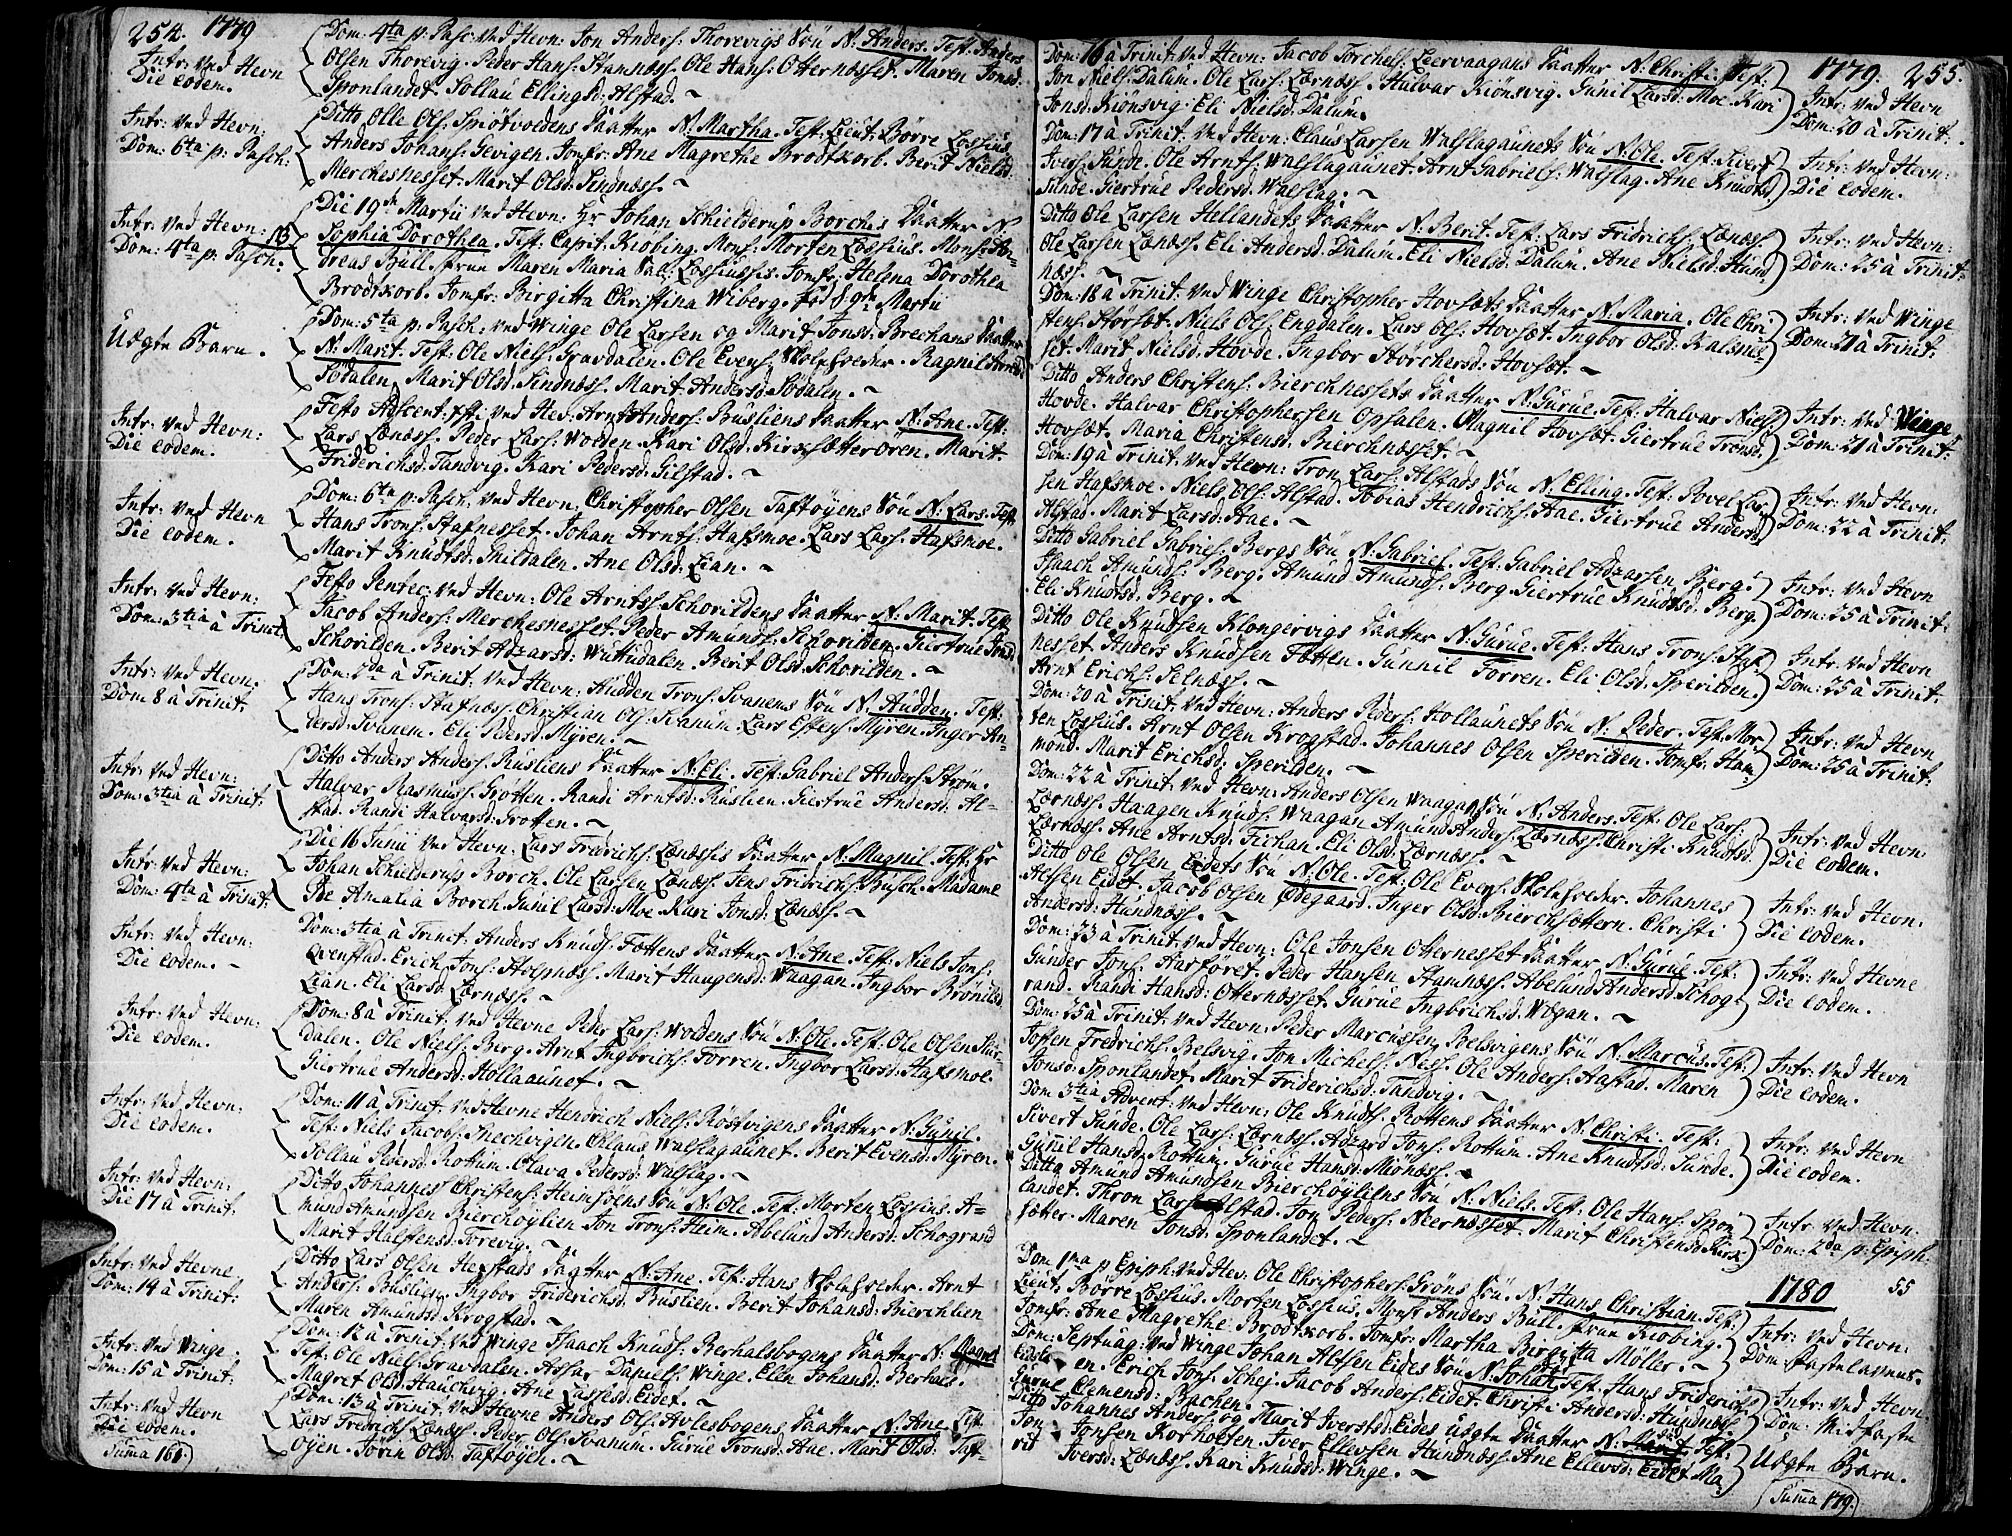 254. 1779
Intr: ved Hevn
Die eodem.
Dom: 4ta p: Pasc: ved Hevn: Jon Anders: Thorevigs Søn N: Anders. Test: Anders
Olsen Thorevig. Peder Hans: Stamnæss. Ole Hans: Otternesset. Maren Jonsd:
Sponlandet. Sollau Ellingsd: Alstad. ~
Intr: ved Hevn:
Dom: 6ta p: Pasch:
Ditto Olle Ols: Spiøtvoldens Daatter N: Martha. Test: Lieut: Børre Lossius
Anders Johans: Gevigen. Jomfr: Ane Magrethe Brodtkorb. Berit Nielsd:
Merchesnesset. Marit Olsd: Sindnæss. ~
Intr: ved Hevn: NB
Dom: 4ta p: Pasch:
Die 19de Martii ved Hevn: Hr Johan Schielderup Borchs Daatter N.
Sophia Dorothea. Test: Capit: Kiobing. Mons: Morten Lossius. Mons: An-
dreas Bull. Frue Maren Maria Sal: Lossiussis. Jomfr: Helena Dorothea
Brodtkorb. Jomfr: Birgitta Christina Wiberg. Fød d 9de Martii
Uægte Barn.
Dom: 5ta p: Pasch: ved Winge Ole Larsen og Marit Jonsd: Brechans Daatter
N: Marit. Test: Ole Niels: Gravdalen. Ole Evens: Skoleholder. Ragnil
Sødalen. Marit Olsd: Sindnæss. Marit Andersd: Sødalen. ~
Intr: ved Hevn:
Die eodem.
Festo Ascent: Xsti ved Hev: Arnt Anders: Rusliens Daatter N: Ane. Test:
Lars Lænæss. Peder Lars: Wolden. Kari Olsd: Kirksætterøren. Marit
Friderichsd: Tandvig. Kari Pedersd: Gilstad. ~
Intr: ved Hevn
Die eodem.
Dom: 6ta p: Pasch: ved Hevn: Christopher Olsen Taftøyens Søn N: Lars. Test:
Hans Trons: Stafnesset. Johan Arnts: Hafsmoe. Lars Lars: Hafsmoe.
Marit Knudtsd: Snildalen. Ane Olsd: Lian. ~
Intr: ved Hevn:
Dom: 3tia à Trinit:
Festo Pentec: ved Hevn: Ole Arnts: Schorildens Daatter N: Marit. Test:
Jacob Anders: Merchesnesset. Peder Amunds: Schorilden. Giertrue
Schorilden. Berit Adzarsd: Wuttudalen. Berit Olsd: Schorilden. ~
Intr: ved Hevn.
Dom 8 à Trinit:
Dom: 2da à Trinit: ved Hevn: Hudden Trons: Svanens Søn N: Audden. Test:
Hans Trons: Stafnæss. Christian Ols: Svanum. Lars Estens: Myren. Inger An-
dersd: Svanem. Eli Pedersd: Myren. ~
Intr: ved Hevn:
Dom: 3tia à Trinit:
Ditto Anders Anders: Rusliens Daatter N: Eli. Test: Gabriel Anders: Strøm.
Halvar Rasmuss: Grøtten. Randi Arntsd: Ruslien. Giertrue Andersd: Al-
stad. Randi Halvarsd: Grotten. ~
Intr: ved Hevn:
Dom: 4ta à Trinit:
Die 16 Junii ved Hevn: Lars Fredrichs: Lænæssis Daatter N: Magnil. Test: Hr
Johan Schielderup Borch. Ole Larsen Lænæss. Jens Fridrichs: Busch. Madame
De Amalia Borch. Gunil Larsd: Moe. Kari Jonsd: Lænæss. ~
Intr: ved Hevn:
Die eodem. ~
Dom: 3tia à Trinit: Anders Knuds: Fættens Daatter N: Ane. Test: Niels Jons:
Qvenstad. Erich Jons: Stolsnæss. Marit Haagensd: Waagan. Ingbor Brønilds
Lian. Eli Larsd: Lernæss. ~
Intr: ved Hevn:
Die eodem.
Dom: 8 à Trinit: ved Hevne Peder Lars: Woldens Søn N: Ole. Test: Ole Olsen
dalen. Ole Niels: Berg. Arnt Ingbrichs: Torren. Ingbor Larsd: Hafsmoe.
Giertrue Andersd: Hollaaunet. ~
Intr: ved Hevn:
Die eodem.
Dom: 11 à Trinit: ved Hevne Hendrich Niels: Røstvigens Daatter N: Gunil.
Test: Niels Jacobs: Snechvigen. Claus Walslagaunet. Berit Evensd: Myren.
Sollau Pedersd: Rottum. Olava Pedersd: Walslag. ~
Intr: ved Hevn:
Die 17 à Trinit:
Ditto Johannes Christens: Heimsoens Søn N: Ole. Test: Morten Lossius. A-
mund Amundsen Bierchøylien. Jon Trons: Heim. Abelund Andersd: Schogrand
Marit Halstensd: Torevig. ~
Intr: ved Hevne
Dom: 14 à Trinit:
Ditto Lars Olsen Hegstads Daatter N: Ane. Test: Hans Skoleholder. Arnt
Anders: Buslien. Ingbor Friderichsd: Buslien. Berit Johansd: Bierchlien
Maren Amundsd: Krogstad. ~
Intr: ved Winge
Dom: 15 à Trinit:
Dom: 12 à Trinit: ved Winge Isaach Knuds: Berhalsbogens Daatter N:
Test: Ole Niels: Gravdalen. Assur Daniels: Winge. Elen Johansd: Berhals.
Magret Olsd: Hauchvig. Ane Lassesd: Eidet. ~
Intr: ved Hevn
Die eodem.
Dom: 13 à Trinit: ved Hevne Anders Ols: Avlesbogens Daatter N: Ane. Test:
Lars Fredrichs: Lænæss. Peder Ols: Svanum. Gurue Tronsd: Aae. Marit Olsd: Taft-
øyen. Sorin Olsd: Taftøyen. ~
Summa 161.
1779. 255.
Dom: 16 à Trinit: ved Hevn: Jacob Torchels: Leervaagans Daatter N: Christi. Test:
Jon Niels: Dalum. Ole Lars: Lærnæss. Halvar Kiønsvig. Gunil Larsd: Moe. Kari
Jonsd: Kiønsvig. Eli Nielsd: Dalum.
Intr: ved Hevn
Dom: 20 à Trinit:
Dom: 17 à Trinit: ved Hevn: Claus Larsen Walslagaunets Søn N: Ole. Test: Sivert
Ivers: Sunde. Ole Arnts: Walslagaunet. Arnt Gabriels: Walslag. Ane Knudtsd:
Sunde. Giertrue Pedersd: Walslag. ~
Intr: ved Hevn:
Die eodem.
Ditto Ole Larsen Hellandets Daatter N: Berit. Test: Lars Fridrichs: Lænæss.
Ole Larsen Lænæss. Eli Andersd: Dalum. Eli Nielsd: Dalum. Ane Nielsd: Hund-
næss. ~
Intr: ved Hevn:
Dom: 25 à Trinit:
Dom: 18 à Trinit: ved Winge Christopher Hovsæts Daatter N: Maria. Ole Chri-
stens: Hovsæt. Niels Ols: Engdalen. Lars Ols: Hovsæt. Ingbor Olsd: Kalsnes-
set. Marit Nielsd: Hovde. Ingbor Størchersd: Hovsæt. ~
Intr: ved Winge
Dom: 21 à Trinit:
Ditto Anders Christens: Bierchnessets Daatter N: Gurue. Test: Halvar Niels:
Hovde. Halvar Christophersen Opsalen. Magnil Hovsæt. Giertrue Tronsd:
Hovsæt. Maria Christensd: Bierchnæsset. ~
Intr: ved Winge
Dom: 21 à Trinit:
Dom: 19 à Trinit: ved Hevn: Tron Lars: Alstads Søn N: Elling. Test: Povel Lar-
sen Hafsmoe. Niels Ols: Alstad. Tobias Hendrichs: Aae. Giertrue Andersd:
Alstad. Marit Larsd: Aae. ~
Intr: ved Hevn:
Dom: 22 à Trinit:
Ditto Gabriel Gabriels: Bergs Søn N: Gabriel. Test: Gabriel Adzarsen Berg.
Isaach Amunds: Berg. Amund Amunds: Berg. Giertrue Knudtsd: Berg
Eli Knudtsd: Berg. ~
Intr: ved Hevn
Dom: 25 à Trinit:
Ditto Ole Knudsen Klongervigs Daatter N: Gurue. Test: Hans Trons: Staf-
nesset. Anders Knudsen Fætten. Gunnil Torren. Eli Olsd: Sperilden.
Arnt Erichs: Selnæss. ~
Intr: ved Hevn
Dom: 25 à Trinit:
Dom: 20 à Trinit: ved Hevn: Anders Peders: Hollaunets Søn N: Peder. Test: Mor-
ten Lossius. Arnt Olsen Krogstad. Johannes Olsen Sperilden. Jomfr: Ham-
mond. Marit Erichsd: Sperilden. ~
Intr: ved Hevn
Dom: 25 à Trinit:
Dom: 22 à Trinit: ved Hevn: Anders Olsen Waagans Søn N: Anders. Test: Ole Lars:
Lærnæss. Haagen Knuds: Waagan. Amund Anders: Lærnæss. Christi Knudtsd:
Lærnæss. Ane Arntsd: Fichan. Eli Olsd: Lærnæss. ~
Intr: ved Hevn:
Die eodem.
Ditto Ole Olsen Eidets Søn N: Ole. Test: Ole Evens: Skoleholder. Johannes
Alfsen Eidet. Jacob Olsen Ødegaard. Inger Olsd: Bierchsøttern. Christi
Andersd: Hundnæss. ~
Intr: ved Hevn:
Die eodem.
Dom: 23 à Trinit: ved Hevn: Ole Jonsen Otternessets Daatter N: Gurue. Test:
Gunder Jons: Aarsøret. Peder Hansen Stamnæss. Abelund Andersd: Schog-
rand. Randi Hansd: Otternæsset. Gurue Ingbrichsd: Wogan. ~
Intr: ved Hevne
Die eodem.
Dom: 25 à Trinit: ved Hevn: Peder Marcussen Belsvigens Søn N: Marcus. Test:
Joften Fredrichs: Belsvig. Jon Michels: Næss. Ole Anders: Aastad. Maren
Jonsd: Sponlandet. Marit Friderichsd: Tandvig. ~
Intr: ved Hevn
Die eodem.
Dom: 3tia Advent: ved Hevn: Ole Knudts: Rottens Daatter N: Christi. Test:
Sivert Sunde. Ole Lars: Lernæss. Adzard Jons: Rottum. Ane Knudtsd: Sunde.
Gunil Hansd: Rottum. Gurue Hansd: Miønæss. ~
Intr: ved Hevn
Die eodem.
Ditto Amund Amundsen Bierchøyliens Søn N: Niels. Test: Ole Hans: Spon-
landet. Thron Lars: Alstad. Jon Peders: Neernæsset. Marit Christensd: Kirk-
sætter. Maren Jonsd: Sponlandet. ~
Intr: ved Hevn:
Dom: 2da p: Epiph:
1780 55
Dom: 1ma p Epiph: ved Hev: Ole Christophers: Grøns Søn. N: Hans Christian. Test:
Lieut: Børre Lossius. Morten Lossius. Mons: Anders Bull. Frue Kiobing.
Jomfr: Ane Magrethe Brodtkorb. Jomfr: Martha Birgitta Möller. ~
Intr: ved Hevn:
Dom: Fastelavens.
Dom: Septuag: ved Winge Johan Alfsen Eides Søn N: Johan. Test: Hans Friderichs:
en. Erich Jons: Schei. Jacob Anders: Eidet. Christi Andersd: Hundnæss.
Gurue Clemensd: Bachen.
Intr: ved Hevn
Dom: Midfaste
Ditto Johannes Anders: og Marit Iversdsd: Eides uægte Daatter N: Marit. Test:
Jon Jonsen Korholten. Iver Ellevsen Hundnæss. Ane Ellevsd: Eidet. Ma-
rit Iversd: Lænæss. Kari Knudsd: Winge. ~
Uægte Barn.
Summa 179.